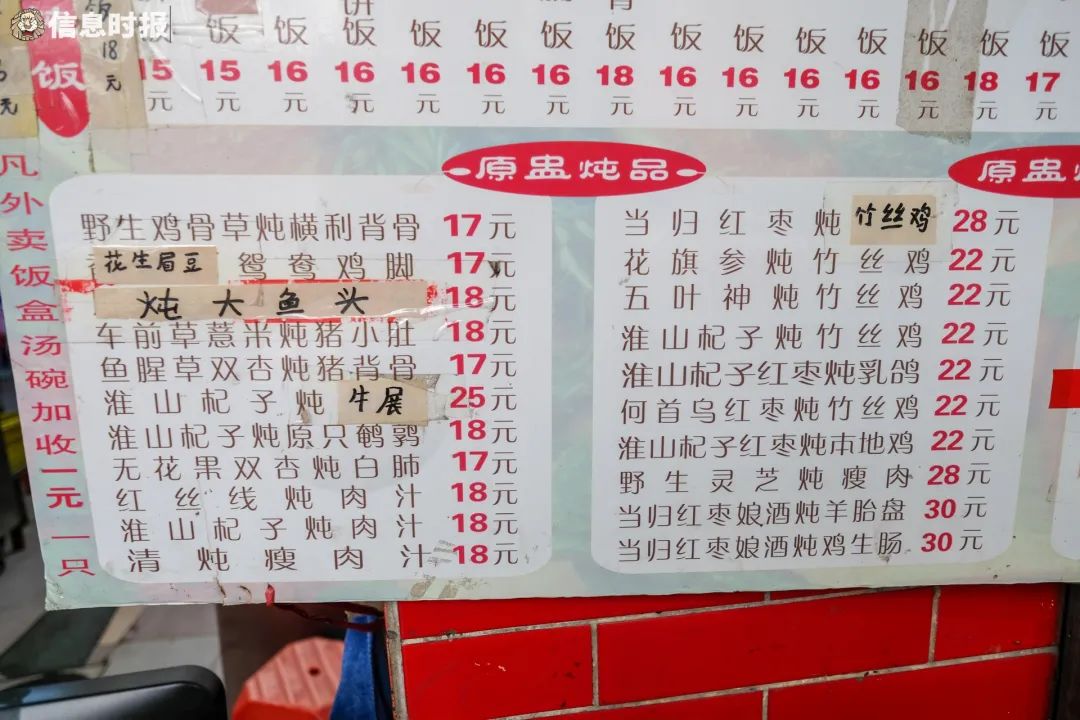 信息时报
饼
饭
18
元
饭 饭 饭 饭 饭 饭 饭 饭 饭 饭 饭 饭 饭 饭 饭
15 15 16 16 16 16 16 18 16 16 16 16 16 18 17
元 元 元 元 元 元 元 元 元 元 元 元 元 元 元
凡外卖饭盒汤碗加收一元一只
原盅炖品
野生鸡骨草炖横利背骨 17元
花生眉豆 鸳鸯鸡脚 17元
炖大鱼头 18元
车前草薏米炖猪小肚 18元
鱼腥草双杏炖猪背骨 17元
淮山杞子炖牛展 25元
淮山杞子炖原只鹌鹑 18元
无花果双杏炖白肺 17元
红丝线炖肉汁 18元
淮山杞子炖肉汁 18元
清炖瘦肉汁 18元
当归红枣炖竹丝鸡 28元
花旗参炖竹丝鸡 22元
五叶神炖竹丝鸡 22元
淮山杞子炖竹丝鸡 22元
淮山杞子红枣炖乳鸽 22元
何首乌红枣炖竹丝鸡 22元
淮山杞子红枣炖本地鸡 22元
野生灵芝炖瘦肉 28元
当归红枣娘酒炖羊胎盘 30元
当归红枣娘酒炖鸡生肠 30元
原盅